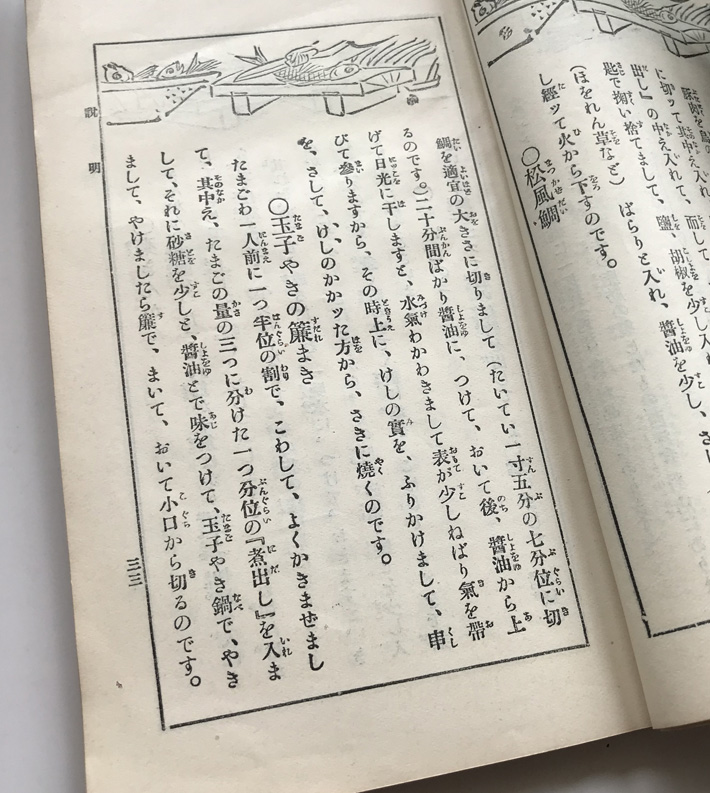 に切ッて其中え入れ
出し』の中え入れて、而して
匙で掬い捨てまして、鹽、胡椒を少し入れ
(ほをれん草など) ばらりと入れ、醬油を少し、さ
し經ッて火から下すのです。
○松風鯛
鯛を適宜の大きさに切りまして (たいてい一寸五分の七分位に切
るのです。) 二十分間ばかり醬油に、つけて、おいて後、醬油から上
げて日光に干しますと、水氣わかわきまして表が少しねばり氣を帶
びて參りますから、その時上に、けしの實を、ふりかけまして、串
を、さして、けしのかかッた方から、さきに燒くのです。
○玉子やきの簾まき
たまごわ一人前に一つ半位の割で、こわして、よくかきませまし
て、其中え、たまごの量の三つに分けた一つ分位の『煮出し』を入ま
して、それに砂糖を少しと、醬油とで味をつけて、玉子やき鍋で、やき
まして、やけましたら簾で、まいて、おいて小口から切るのです。
説明
三三